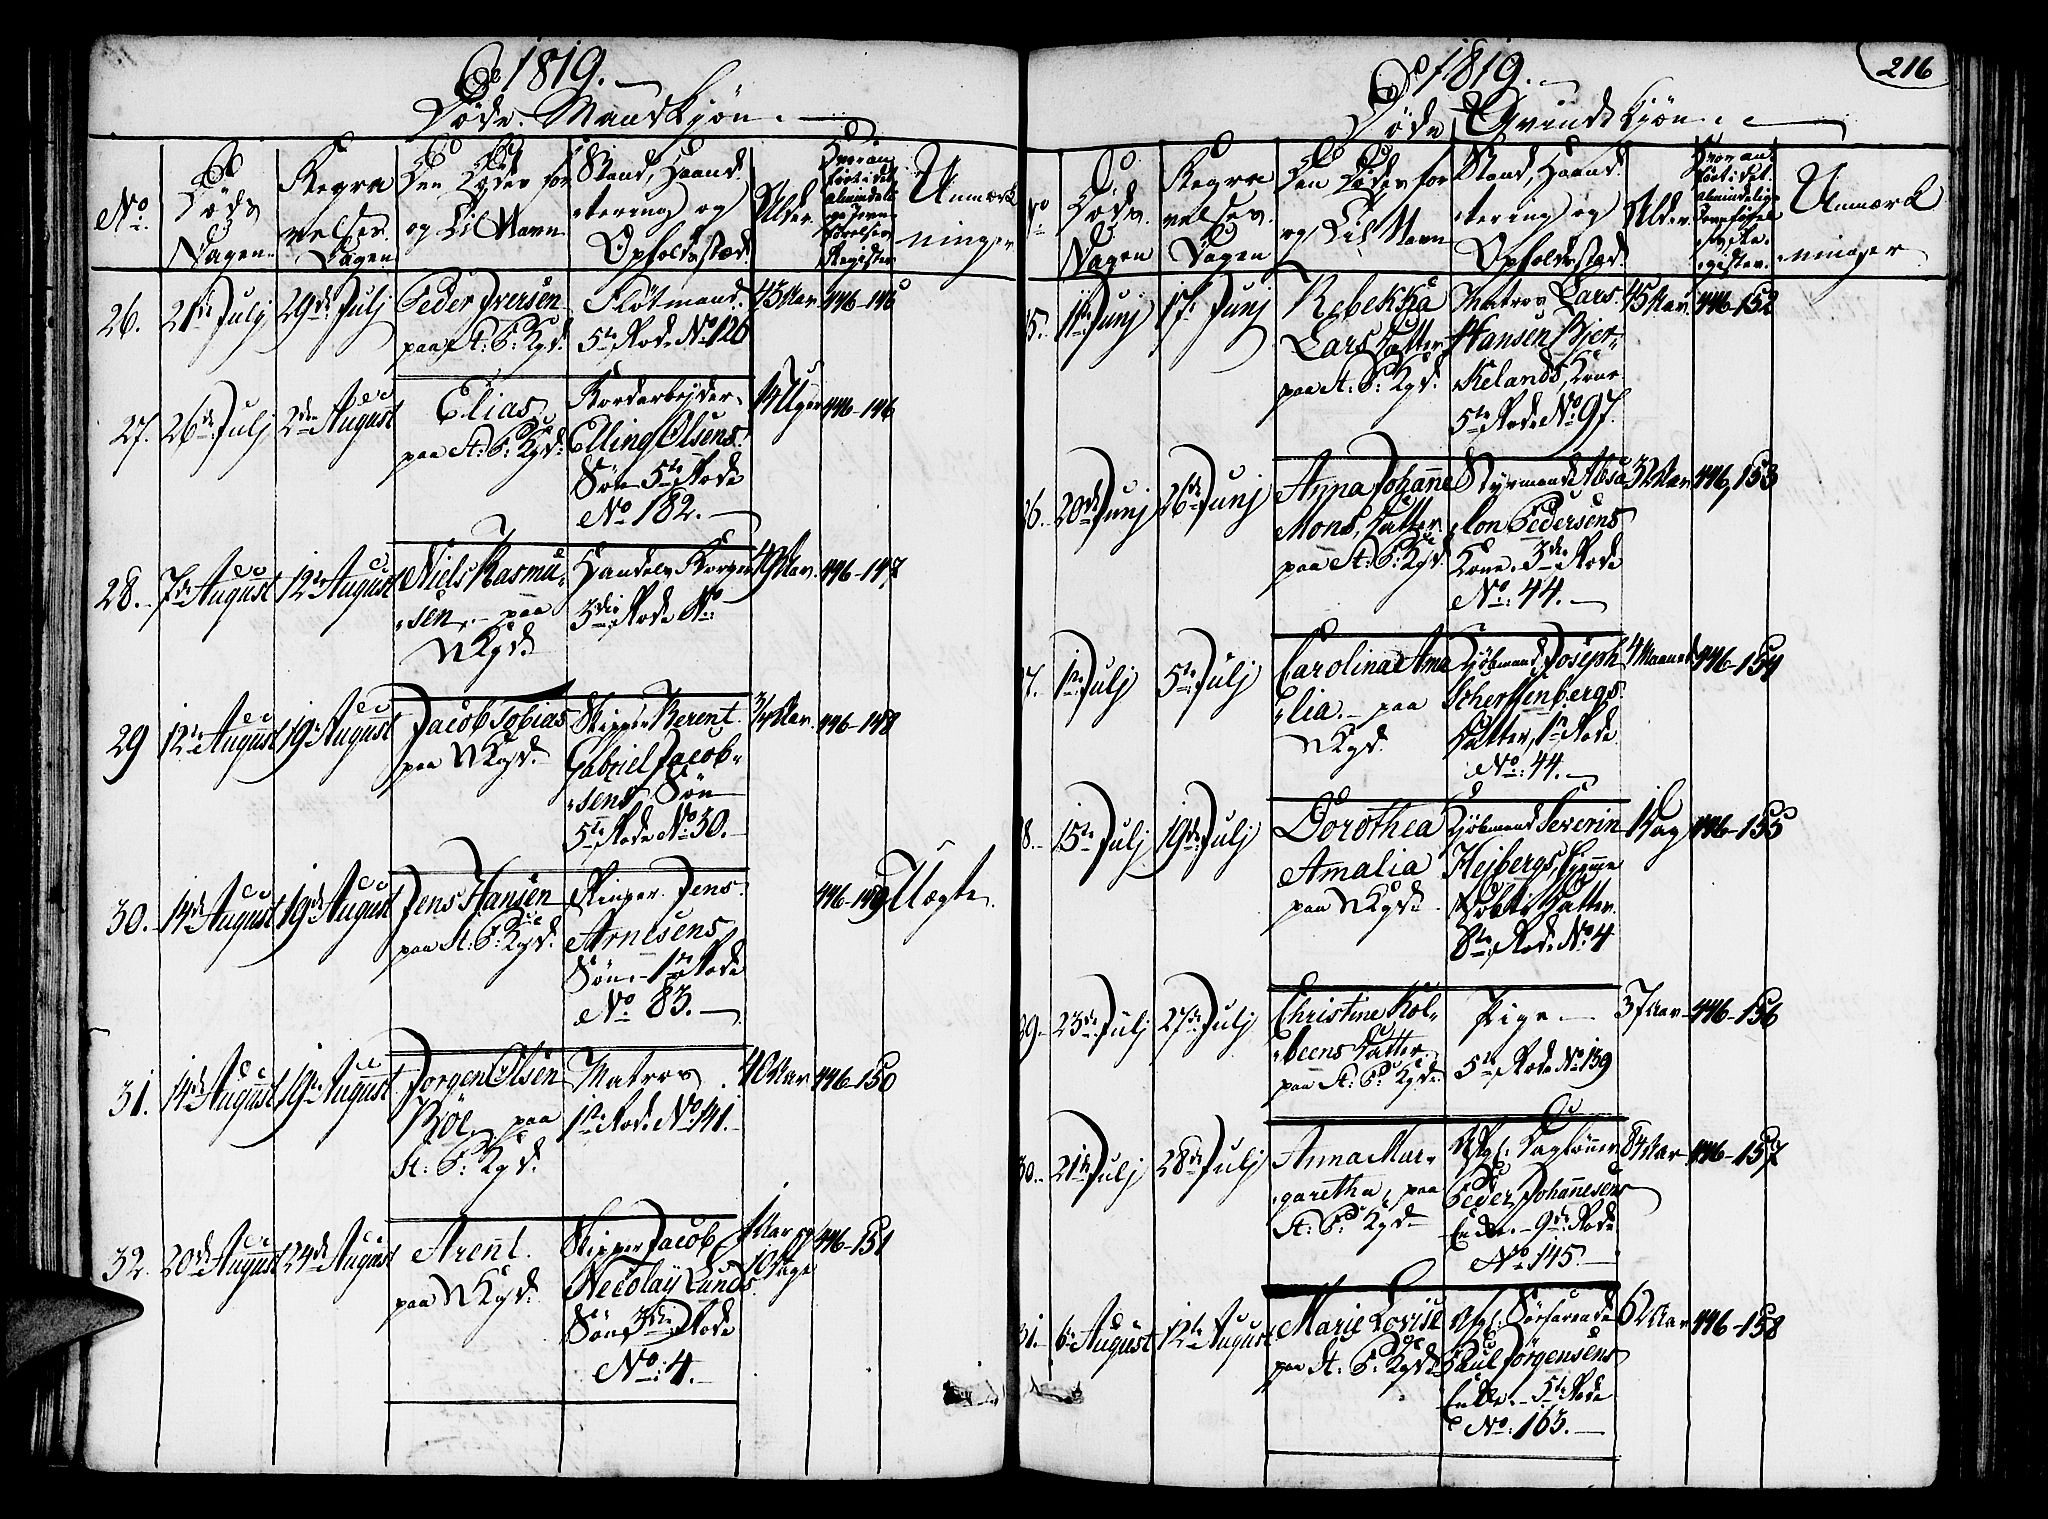 1819.
Døde. Mandkjøn.
No.
Døds
Dagen
Begra
velses
Dagen
Den Dødes for
og Til Navn
Stand, Haand-
tering og
Opholdsstæd.
Alder.
Hvor an
ført i det
almindeli
ge Jevn
førelses
Register
Anmærk
ninger
26.
21de Julj
29de Julj
Peder Iversen
paa St: P: Kgd.
Fløtmand.
5te Rode No 120
45 Aar.
446-145
27.
26de Julj
2den August
Elias
paa St: P: Kgd.
Bordarbejder
Elling Olsens
Søn 5te Rode
No 182.
14 Uger
446-146
28.
7de August
12te August
Niels Rasmu-
sen, paa
N Kgd.
Handels Borger
3die Rode No:
49 Aar.
446-147
29
12te August
19de August
Jacob Tobias
paa N Kgd.
Skipper Berent
Gabriel Jacob-
sens Søn
5te Rode No: 30.
3/4 Aar.
446-148
30.
14de August
19de August
Jens Hansen
paa St: P: Kgd.
Skipper Jens
Arnesens
Søn. 1te Rode
No 83.
446-149
Uægte.
31.
14de August
19de August
Jørgen Olsen
Bøe, paa
St: P: Kgd.
Matros.
1te Rode No: 141.
40 Aar
446-150
32.
20de August
24de August
Arent.
paa N Kgd.
Skipper Jacob
Necolaÿ Lunds
Søn, 3die Rode
No: 4.
1 Aar og
10 Dage
446-151
1819.
Døde, Qvindekjøn.
216
No
Døds
Dagen
Begra
velses
Dagen
Den Dødes for
og Til Navn
Stand, Haand
tering og
Opholdsstæd.
Alder.
Hvor an
ført i det
almindelige
Jevnførel
ses Re
gister.
Anmærk
ninger
25.
11te Junj
17de Junj
Rebekka
Lars Datter
paa St: P: Kgd.
Matros Lars
Hansen Bjer-
kelands Kone
5te Rode No: 97.
45 Aar.
446-152
26.
20de Junj
26de Junj
Anna Johanne
Mons Datter
paa St: P: Kgd.
Styrmand Absa
lon Pedersens
Kone. 3die Rode
No: 44.
32 Aar
446,153
27.
1te Julj
5te Julj
Carolina Ama
lia. paa
N Kgd.
Kjøbmand Joseph
Scherffenbergs
Datter, 1te Rode
No: 44.
4 Maaned
446-154
28.
15te Julj
19de Julj
Dorothea
Amalia
paa N Kgd.
Kjøbmand Severin
Hejbergs hjemme
døbte Datter
8te Rode No: 4
1 Dag
446-155
29.
23de Julj
27de Julj
Christine Kol-
beens Datter
paa St: P: Kgd.
Pige.
5te Rode No 139
37 Aar
446-156
30.
21de Julj
28de Julj
Anna Mar-
garetha, paa
St: P: Kgd.
Afg: Dagløner
Peder Johannesens
Enke. 9de Rode
No 145.
84 Aar
446-157
31.
6te August
12te August
Marie Lovise
paa St: P: Kgd.
Afg: Søefarende
Paul Jørgensens
Enke. 5te Rode
No: 163.
62 Aar
446-158